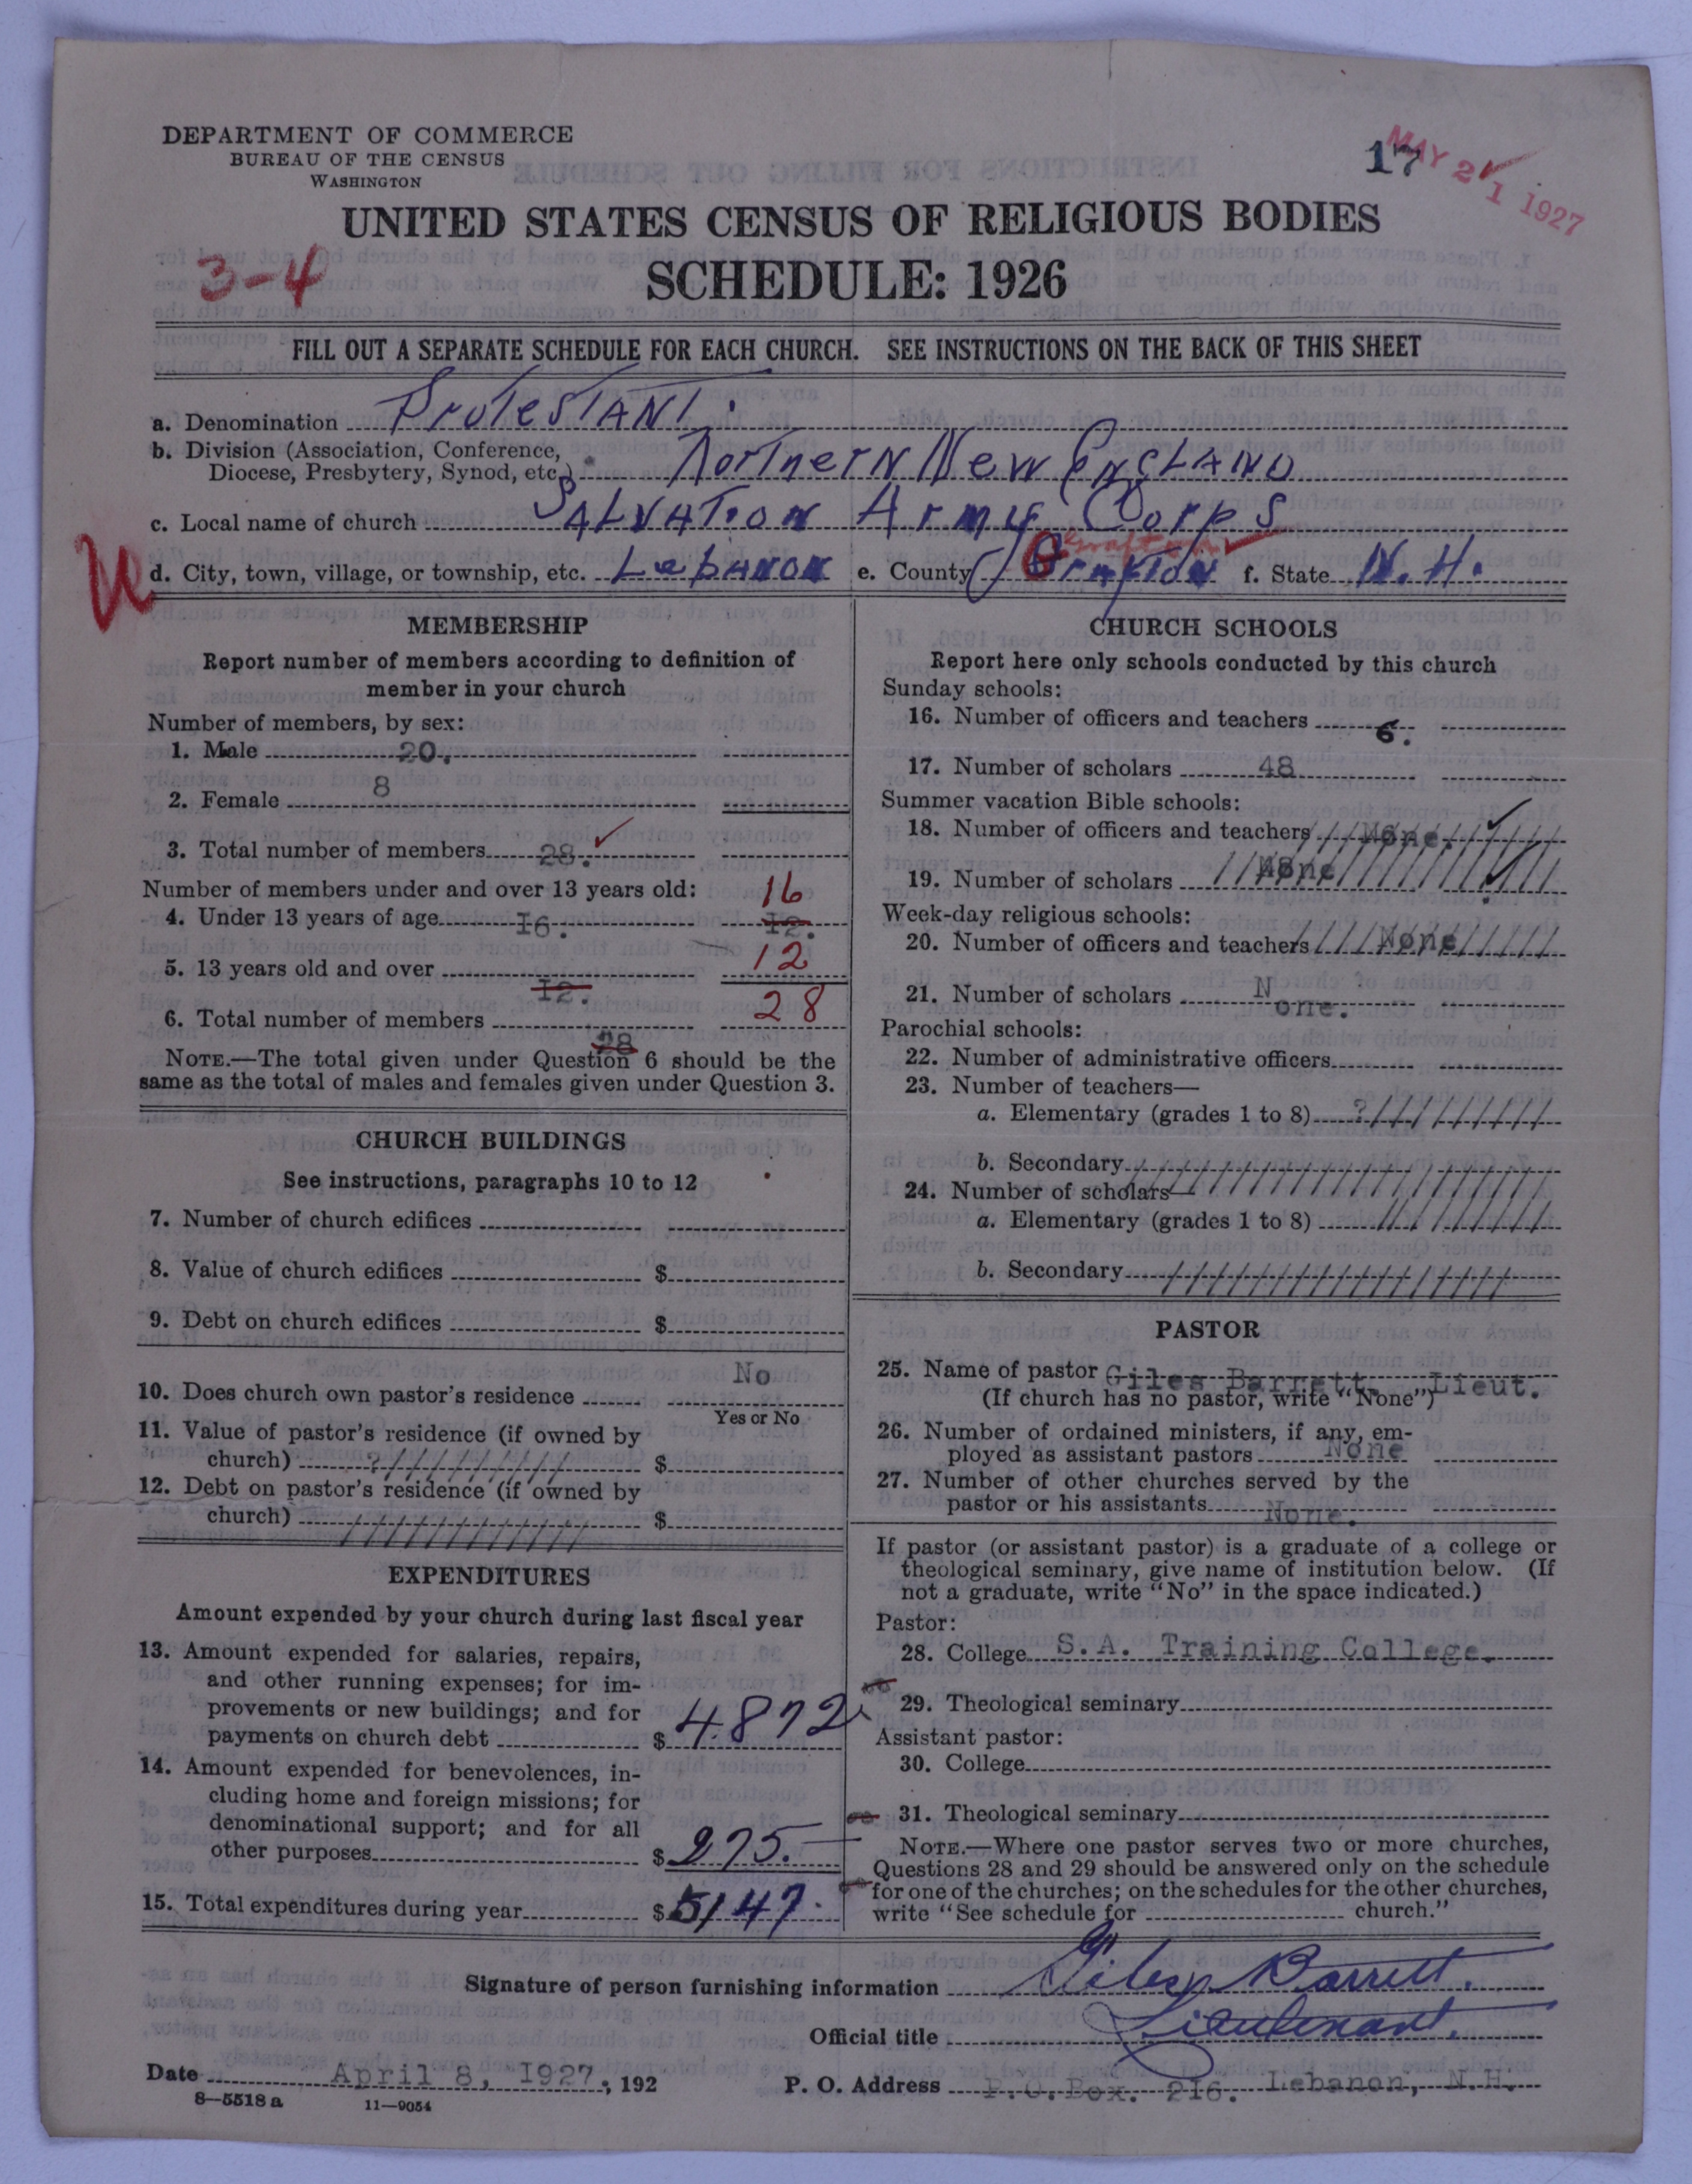 DEPARTMENT OF COMMERCE
BUREAU OF THE CENSUS
WASHINGTON
17
MAY 21 1927
UNITED STATES CENSUS OF RELIGIOUS BODIES
3-4
SCHEDULE: 1926
FILL OUT A SEPARATE SCHEDULE FOR EACH CHURCH. SEE INSTRUCTIONS ON THE BACK OF THIS SHEET
a. Denomination Protestant.
b. Division (Association, Conference,
Diocese, Presbytery, Synod, etc.) Northern New England
c. Local name of church Salvation Army Corps
Grafton
d. City, town, village, or township, etc. Lebanon e. County f. State N. H.
MEMBERSHIP
Report number of members according to definition of
member in your church
Number of members, by sex:
1. Male 20.
2. Female 8
3. Total number of members 28.
Number of members under and over 13 years old: 16
4. Under 13 years of age 16. 12.
5. 13 years old and over 12
12.
6. Total number of members 28
28
NOTE.—The total given under Question 6 should be the
same as the total of males and females given under Question 3.
CHURCH BUILDINGS
See instructions, paragraphs 10 to 12
7. Number of church edifices
8. Value of church edifices $
9. Debt on church edifices $
10. Does church own pastor's residence No
Yes or No
11. Value of pastor's residence (if owned by
church) ?////////// $
12. Debt on pastor's residence (if owned by
church) ///////////// $
EXPENDITURES
Amount expended by your church during last fiscal year
13. Amount expended for salaries, repairs,
and other running expenses; for im-
provements or new buildings; and for
payments on church debt $ 4872
14. Amount expended for benevolences, in-
cluding home and foreign missions; for
denominational support; and for all
other purposes $ 275.
15. Total expenditures during year $ 5147.
CHURCH SCHOOLS
Report here only schools conducted by this church
Sunday schools:
16. Number of officers and teachers 6.
17. Number of scholars 48
Summer vacation Bible schools:
18. Number of officers and teachers None.
19. Number of scholars None
Week-day religious schools:
20. Number of officers and teachers None
21. Number of scholars N
one.
Parochial schools:
22. Number of administrative officers
23. Number of teachers—
a. Elementary (grades 1 to 8) ?///////////
b. Secondary
24. Number of scholars—
a. Elementary (grades 1 to 8)
b. Secondary
PASTOR
25. Name of pastor Giles Barrett. Lieut.
(If church has no pastor, write "None")
26. Number of ordained ministers, if any, em-
ployed as assistant pastors None
27. Number of other churches served by the
pastor or his assistants None.
If pastor (or assistant pastor) is a graduate of a college or
theological seminary, give name of institution below. (If
not a graduate, write "No" in the space indicated.)
Pastor:
28. College S.A. Training College.
29. Theological seminary
Assistant pastor:
30. College
31. Theological seminary
NOTE.—Where one pastor serves two or more churches,
Questions 28 and 29 should be answered only on the schedule
for one of the churches; on the schedules for the other churches,
write "See schedule for church."
Signature of person furnishing information Giles Barrett.
Official title Lieutenant.
Date April 8, 1927. , 192
P. O. Address P.O. Box. 216. Lebanon, N.H.
8—5518 a 11—9054